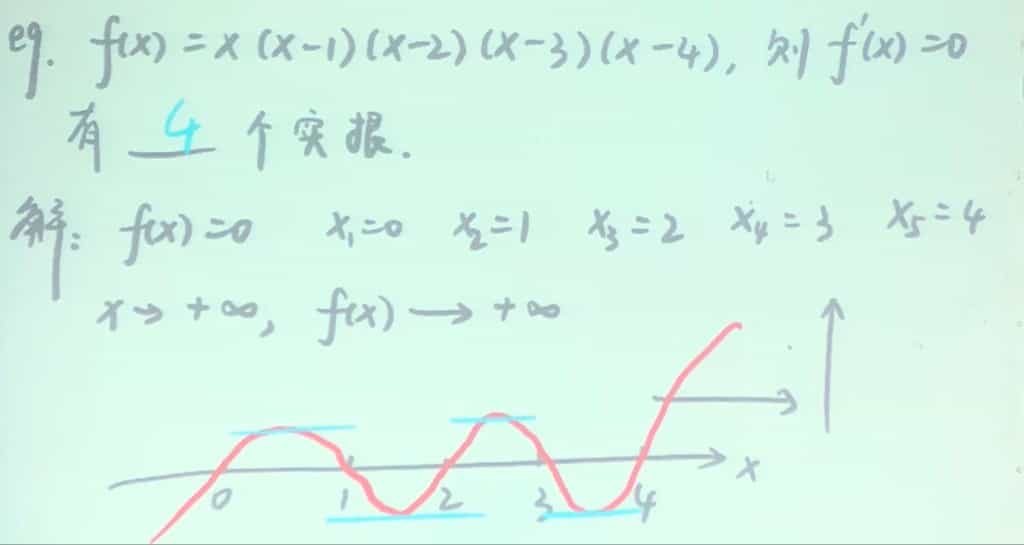 eg. f(x) = x (x-1)(x-2)(x-3)(x-4), 则 f'(x)=0
有 4 个实根.
解: f(x)=0 x₁=0 x₂=1 x₃=2 x₄=3 x₅=4
x→+∞, f(x)→+∞
0 1 2 3 4 x